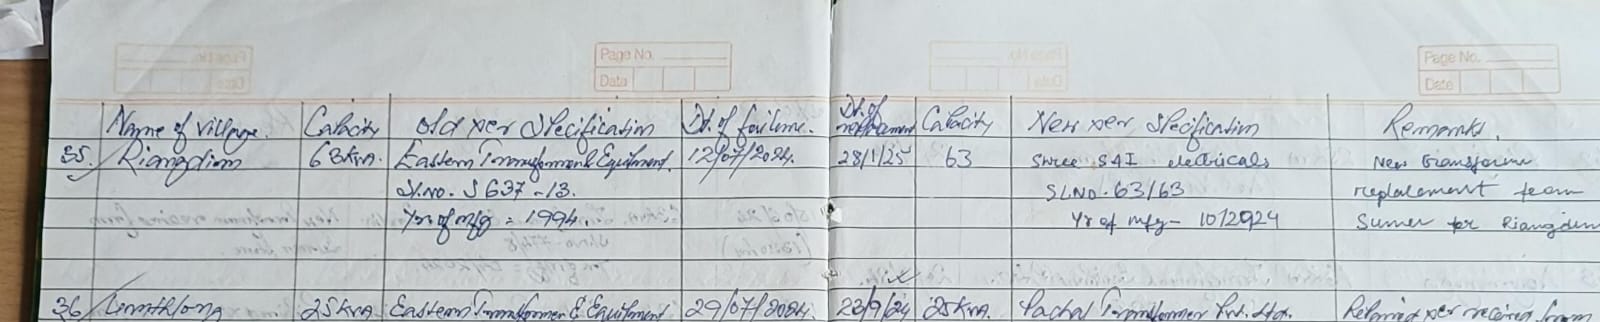 Page No.
Date
Page No.
Date
Name of village. Capacity Old xer Specification Dt. of failure. Dt. of Capacity New xer Specification Remarks.
35. Riangdim 63kva. Eastern Transformer & Equipment. 12/07/2024. 28/1/25 63 Shree SAI electricals New
Sl.No. S 637-13. SLNO-63/63 replacement team
Yr of mfg = 1994. Yr of mfg - 10/2024 Sumer for Riangdim
36 25kva Eastern Transformer & Equipment 29/07/2024. 23/9/24 25kva. Transformer Pvt. Ltd. xer received from